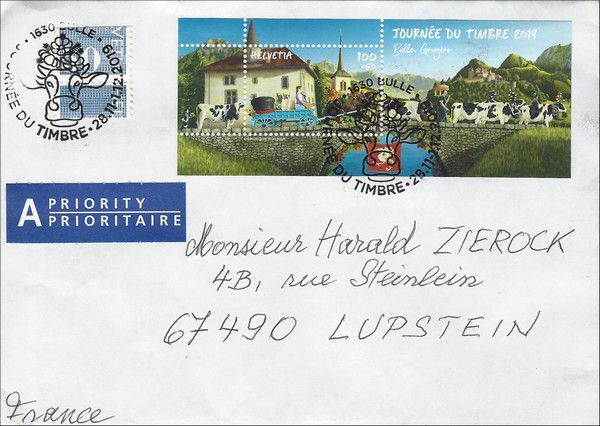 1630 BULLE
JOURNÉE DU TIMBRE • 28.11-1.12.2019
HELVETIA
100
+50
JOURNÉE DU TIMBRE 2019
Bulle, Gruyère
1630 BULLE
DU TIMBRE • 28.11-1.12.2019
A PRIORITY
PRIORITAIRE
Monsieur Harald ZIEROCK
4B, rue Steinlein
67490 LUPSTEIN
France